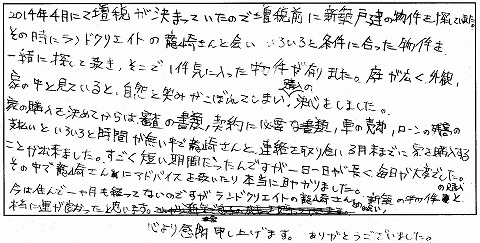 2014年4月にて増税が決まっていたので増税前に新築戸建の物件を探していました。
その時にランドクリエイトの龍崎さんと会い、いろいろと条件に合った物件を
一緒に探して頂き、そこで1件気に入った物件が有りました。庭が広く、外観、
家の中を見ていると、自然と笑みがこぼれてしまい、購入の決心をしました。
家の購入を決めてからは審査の書類、契約に必要な書類、車の売却、ローンの残害の
支払いといろいろと時間が無い中で龍崎さんと連絡を取り合い3月末までに家を購入する
ことが出来ました。すごく短い期間だったんですが一日一日が長く毎日が大変でした。
その中で龍崎さんにアドバイスを頂いたり本当に助かりました。
今は住んで一ヶ月も経ってないのですがランドクリエイトの龍崎さん、新築の物件との出会い
本当に運が良かったと思います。
心より感謝申し上げます。ありがとうございました。